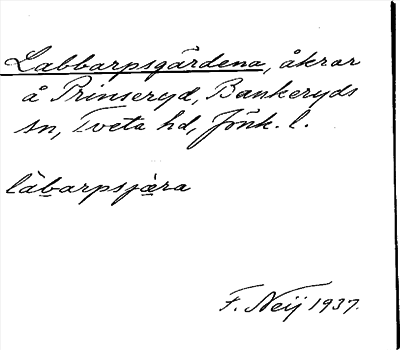 Labbarpsgärdena, åkrar
å Prinseryd, Bankeryds
sn, Tveta hd, Jönk. l.
läbarpsjæra
F. Neij 1937.